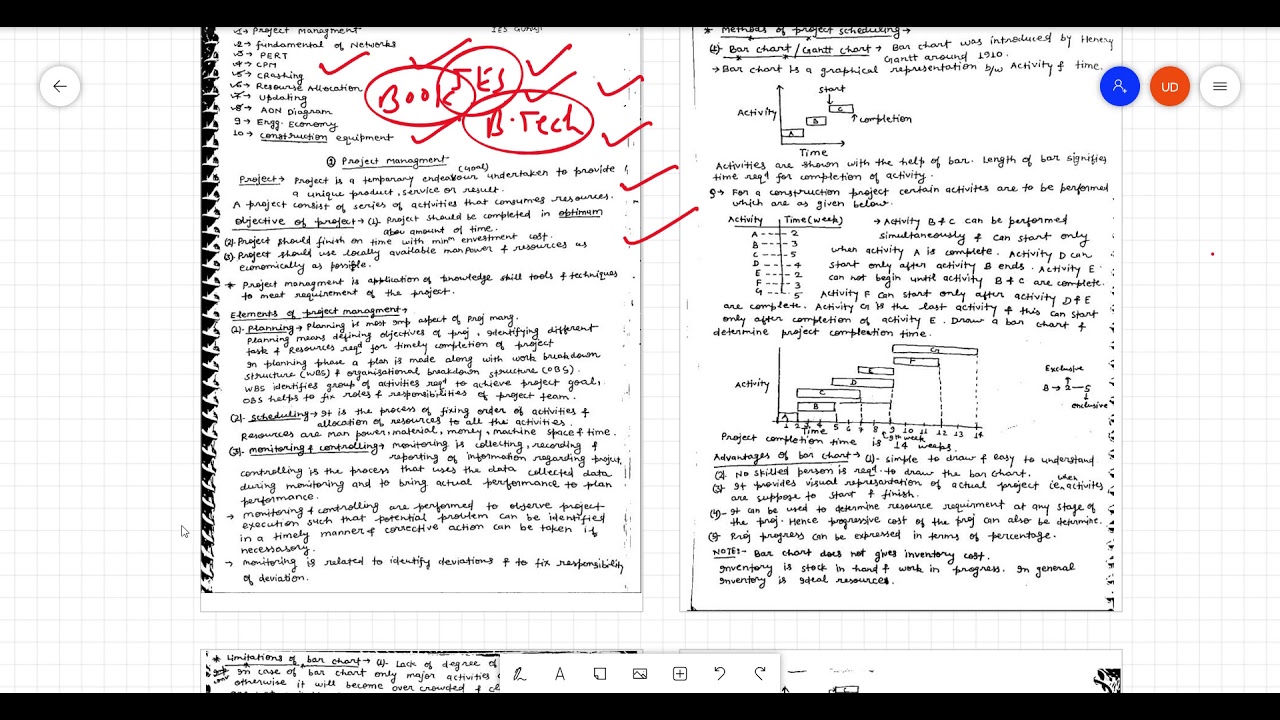 1→ Project Managment
IES Gurugi
2→ fundamental of Networks
3→ PERT
4→ CPM
5→ Crashing
6→ Resourse Allocation
7→ Updating
8→ AON Diagram
9→ Engg. Economy
10→ Construction equipment
Books
IES
B.Tech
① Project Managment
(Goal)
Project→ Project is a temparary endeavour undertaken to provide
a unique product, service or result.
A project consist of series of activities that consumes resources.
Objective of project→ (1). Project should be completed in optimum
amount of time.
(2). Project should finish on time with minm envestment cost.
(3). Project should use locally available manpower & resources as
economically as possible.
* Project managment is application of knowledge skill tools & techniques
to meet requirement of the project.
Elements of project managment→
(1). Planning→ Planning is most imp aspect of proj mang.
Planning means defining objectives of proj, identifying different
task & Resources reqd for timely completion of project
In planning phase a plan is made along with work breakdown
structure (WBS) & organisational breakdown structure (OBS).
WBS identifies group of activities reqd to achieve project goal,
OBS helps to fix roles & responsibilities of project team.
(2). Scheduling→ It is the process of fixing order of activities &
allocation of resources to all the activities.
Resources are man power, material, money, machine space & time.
(3). monitoring & controlling→ monitoring is collecting, recording &
reporting of information regarding project
controlling is the process that uses the data collected data
during monitoring and to bring actual performance to plan
performance.
→ monitoring & controlling are performed to observe project
execution such that potential problem can be identified
in a timely manner & corrective action can be taken if
necessasory.
→ monitoring is related to identify deviations & to fix responsibility
of deviation.
* Methods of project scheduling→
(1) Bar chart/Gantt chart→ Bar chart was introduced by Henery
Gantt around 1910.
→ Bar chart is a graphical representation b/w Activity & time.
start
Activity
C
B
A
completion
Time
Activities are shown with the help of bar. Length of bar signifies
time reqd for completion of activity.
Q→ For a construction project certain activites are to be performed
which are as given below.
Activity Time (week)
A ---- 2
B ---- 3
C ---- 5
D ---- 4
E ---- 2
F ---- 3
G ---- 5
→ Activity B & C can be performed
simultaneously & can start only
when activity A is complete. Activity D can
start only after activity B ends. Activity E
can not begin until activity B & C are complete.
Activity F can start only after activity D & E
are complete. Activity G is the last activity & this can start
only after completion of activity E. Draw a bar chart &
determine project completion time.
G
F
E
D
C
B
A
Activity
1 2 3 4 5 6 7 8 9 10 11 12 13 14
Time
Exclusive
B → 2-5
exclusive
Project completion time is 14 weeks.
Advantages of bar chart→ (1)- simple to draw & easy to understand
(2). No skilled person is reqd. to draw the bar chart.
(3). It provides visual representation of actual project i.e. when activites
are suppose to start & finish.
(4)- It can be used to determine resource requirment at any stage of
the proj. Hence progressive cost of the proj can also be determine.
(5) Proj progress can be expressed in terms of percentage.
NOTE:- Bar chart does not gives inventory cost.
Inventory is stock in hand & work in progress. In general
inventory is ideal resources.
UD
* Limitations of bar chart→ (1)- Lack of degree of
In case of bar chart only major activities
otherwise it will become over crowded &
A